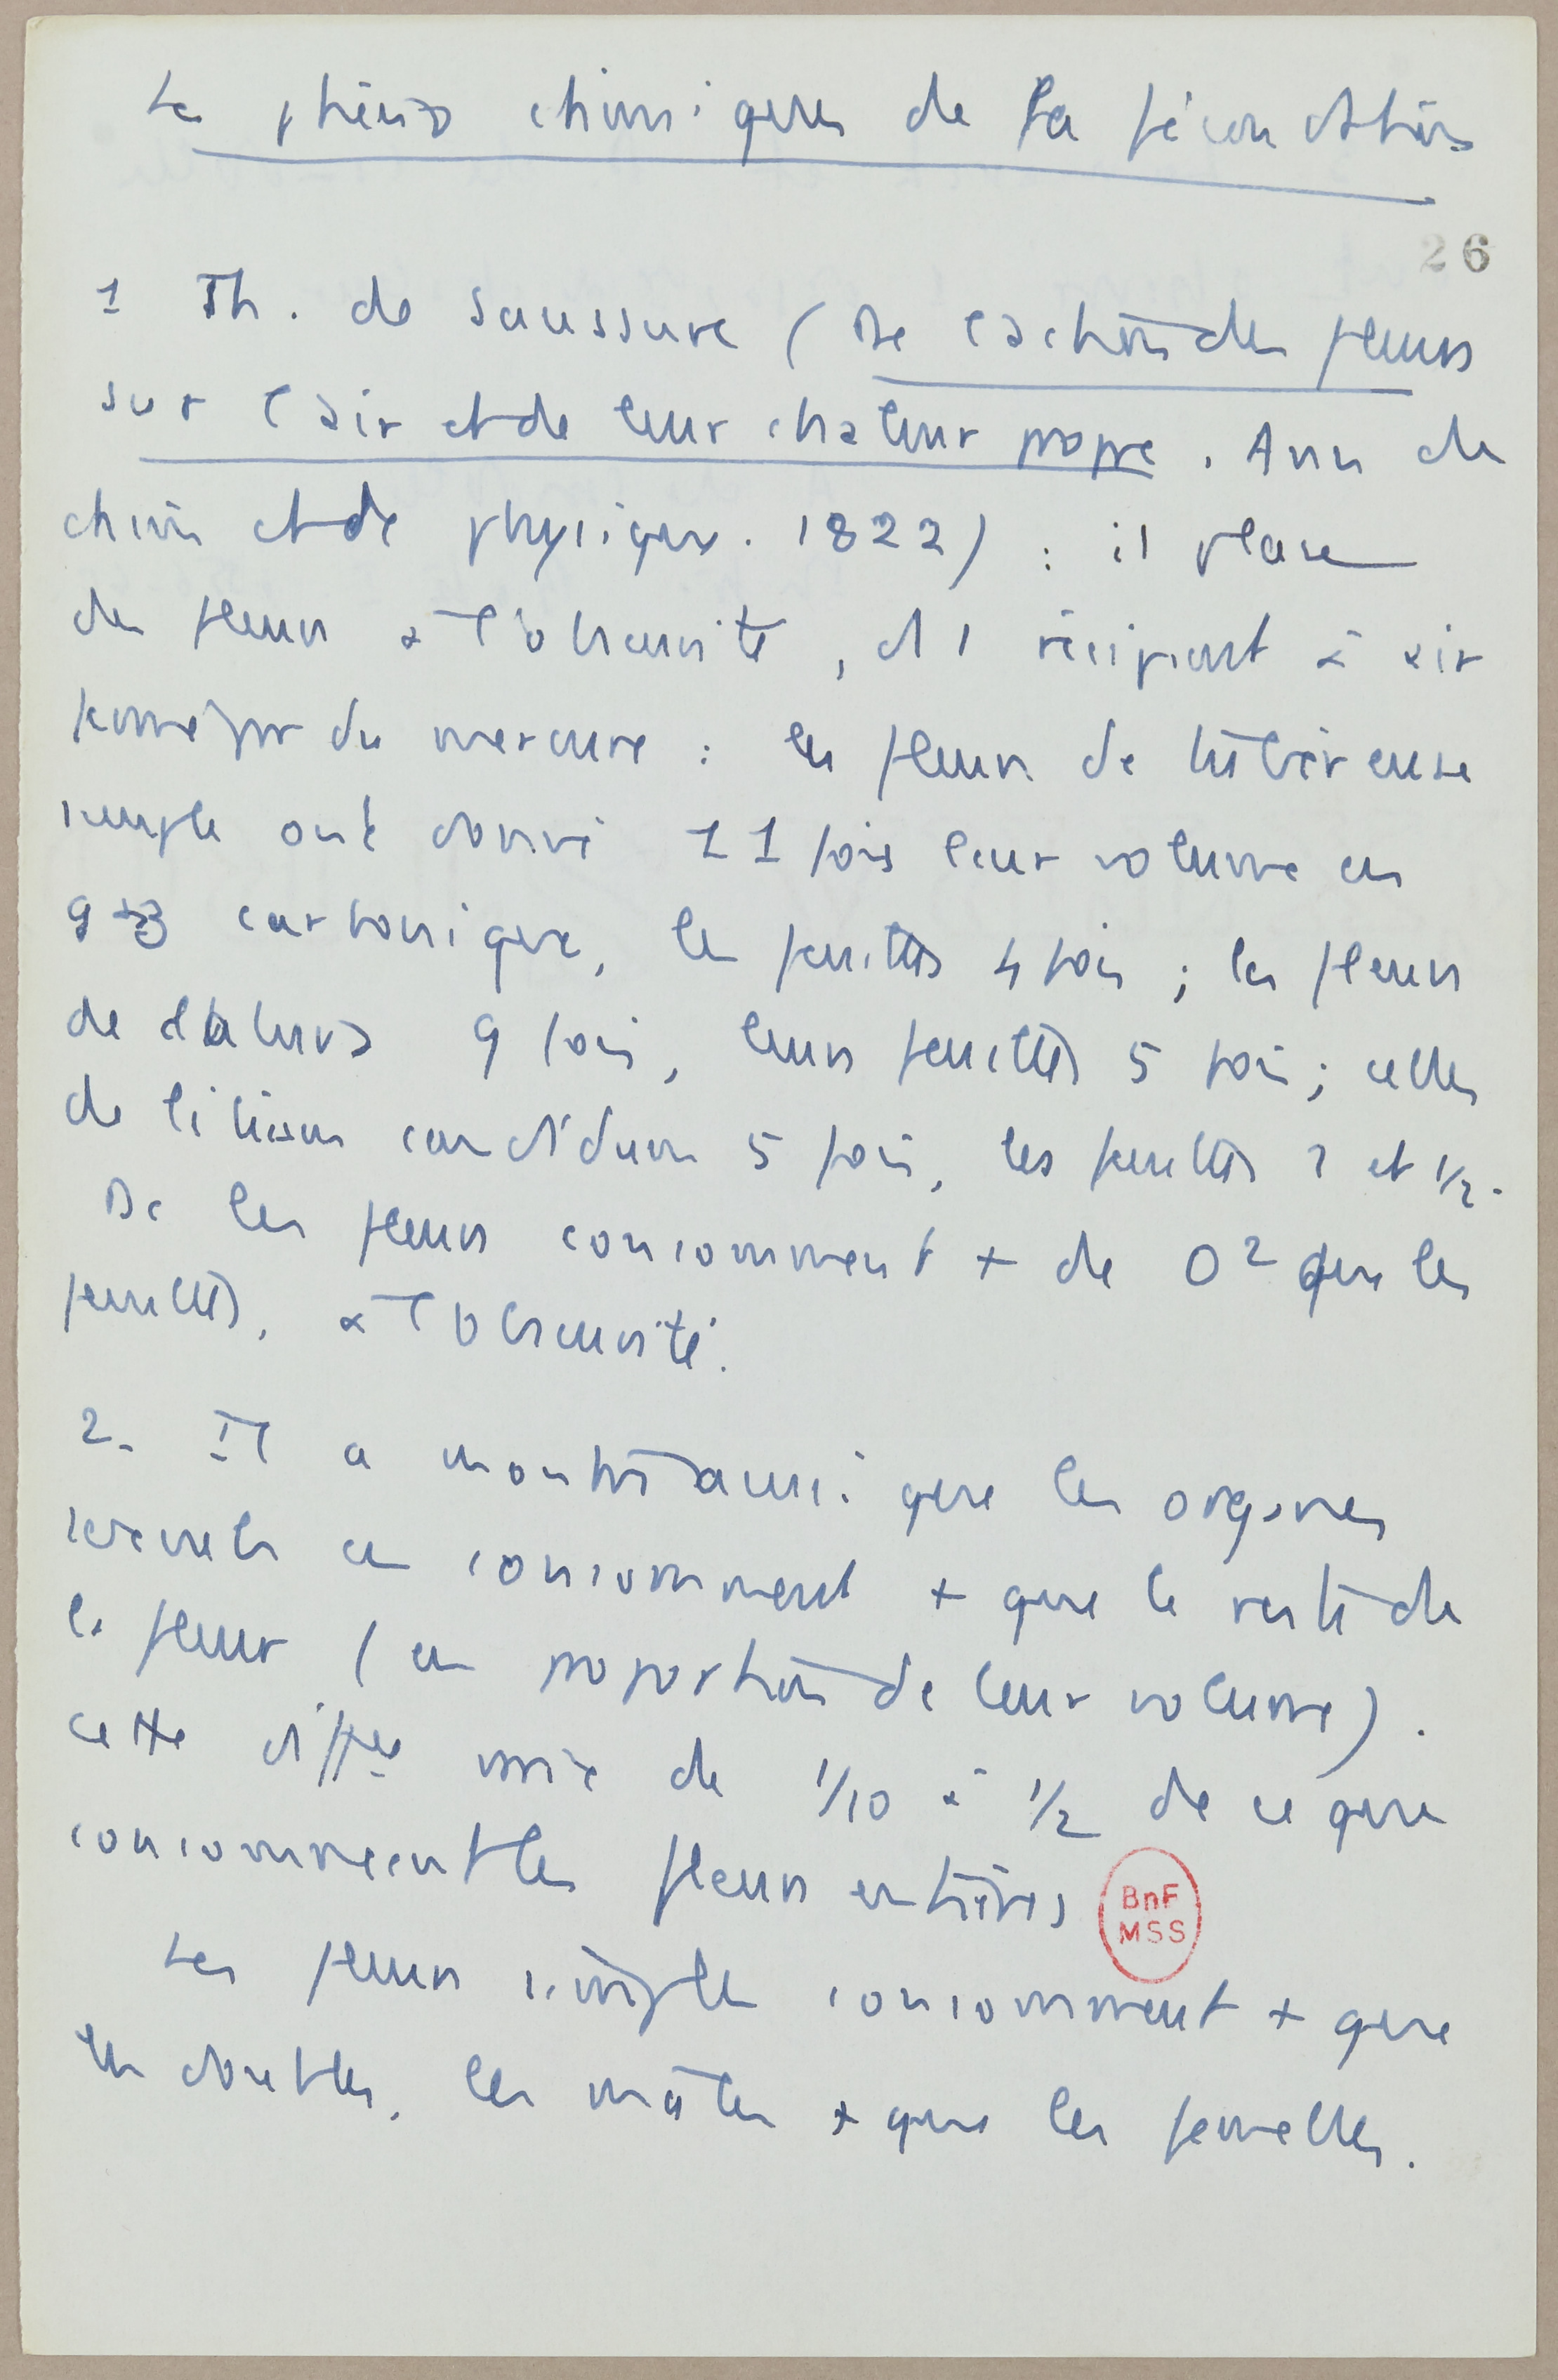 Les phén chimiques de la fécondation
26
1 Th. de Saussure (De l'action des fleurs
sur l'air et de leur chaleur propre. Ann de
chimie et de physique. 1822) : il place
des fleurs à l'obscurité, ds 1 récipient à air
fermé par du mercure : les fleurs de tubéreuse
simple ont donné 11 fois leur volume en
gaz carbonique, les feuilles 4 fois ; les fleurs
de 9 fois, leurs feuilles 5 fois ; celles
de lilium candidum 5 fois, les feuilles 2 et 1/2.
Dc les fleurs consomment + de O2 que les
feuilles, à l'obscurité.
2. Il a montré aussi que les organes
sexuels en consomment + que le reste de
la fleur (en proportion de leur volume).
cette diffce varie de 1/10 à 1/2 de ce que
consommaient les fleurs entières
BnF
MSS
Les fleurs simples consomment + que
les doubles, les mâles + que les femelles.